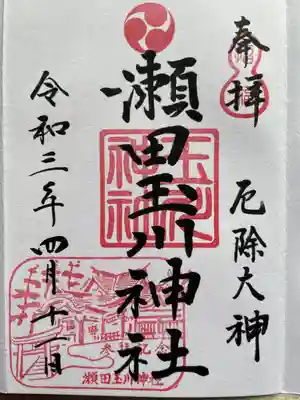 奉拝
厄除大神
瀬田玉川神社
令和三年四月十一日
参拝記念
瀬田玉川神社